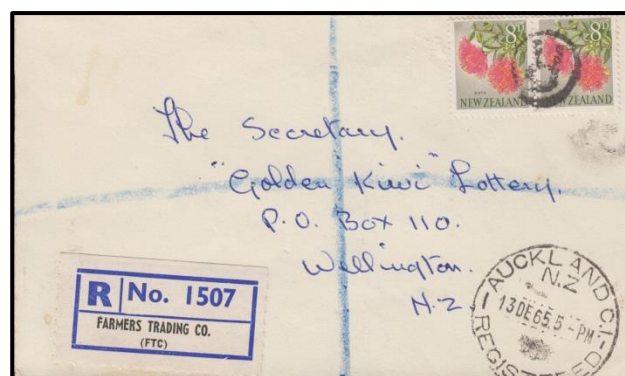 8D 8D
RATA
NEW ZEALAND NEW ZEALAND
The Secretary.
"Golden Kiwi" Lottery.
P.O. Box 110.
Wellington.
N.Z.
R No. 1507
FARMERS TRADING CO.
(FTC)
AUCKLAND C.1
N.Z
13 DE 65.5 - PM
REGISTERED